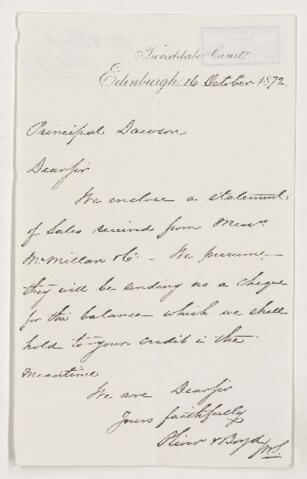 Tweeddale Court,
Edinburgh 16 October 1872
Principal Dawson
Dear Sir
We enclose a statement
of Sales received from Messrs
McMillan & Co. - We presume
they will be sending us a cheque
for the balance which we shall
hold to your credit in the
meantime
We are Dear Sir
Yours faithfully
Oliver & Boyd